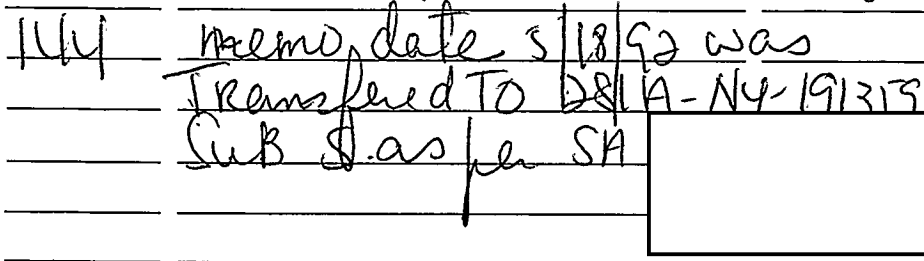 144 memo, date 5/18/92 was
Transfered TO 281A-NY-191359
SUB D. as per SA